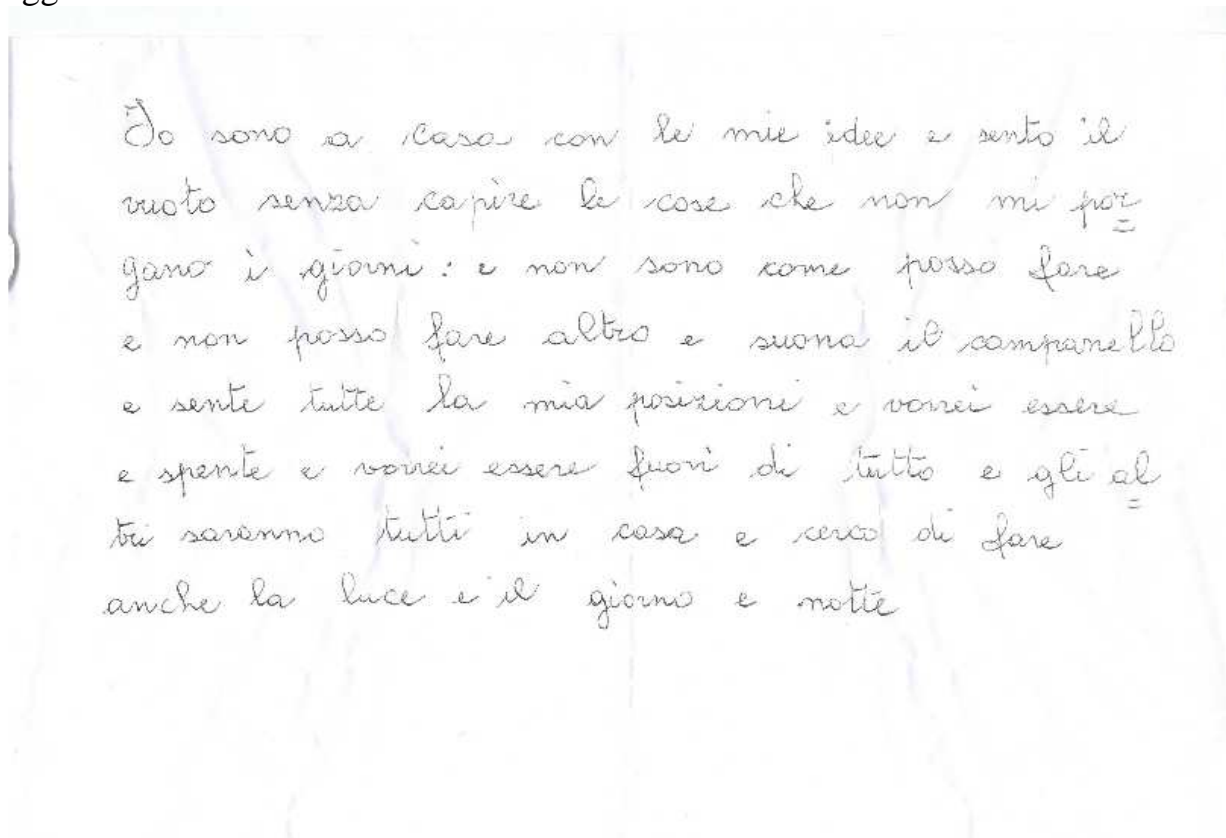 gg
Io sono a casa con le mie idee e sento il
vuoto senza capire le cose che non mi por=
gano i giorni : e non sono come posso fare
e non posso fare altro e suona il campanello
e sente tutte la mia posizioni e vorrei essere
e spente e vorrei essere fuori di tutto e gli al=
tri saranno tutti in casa e cerco di fare
anche la luce e il giorno e notte